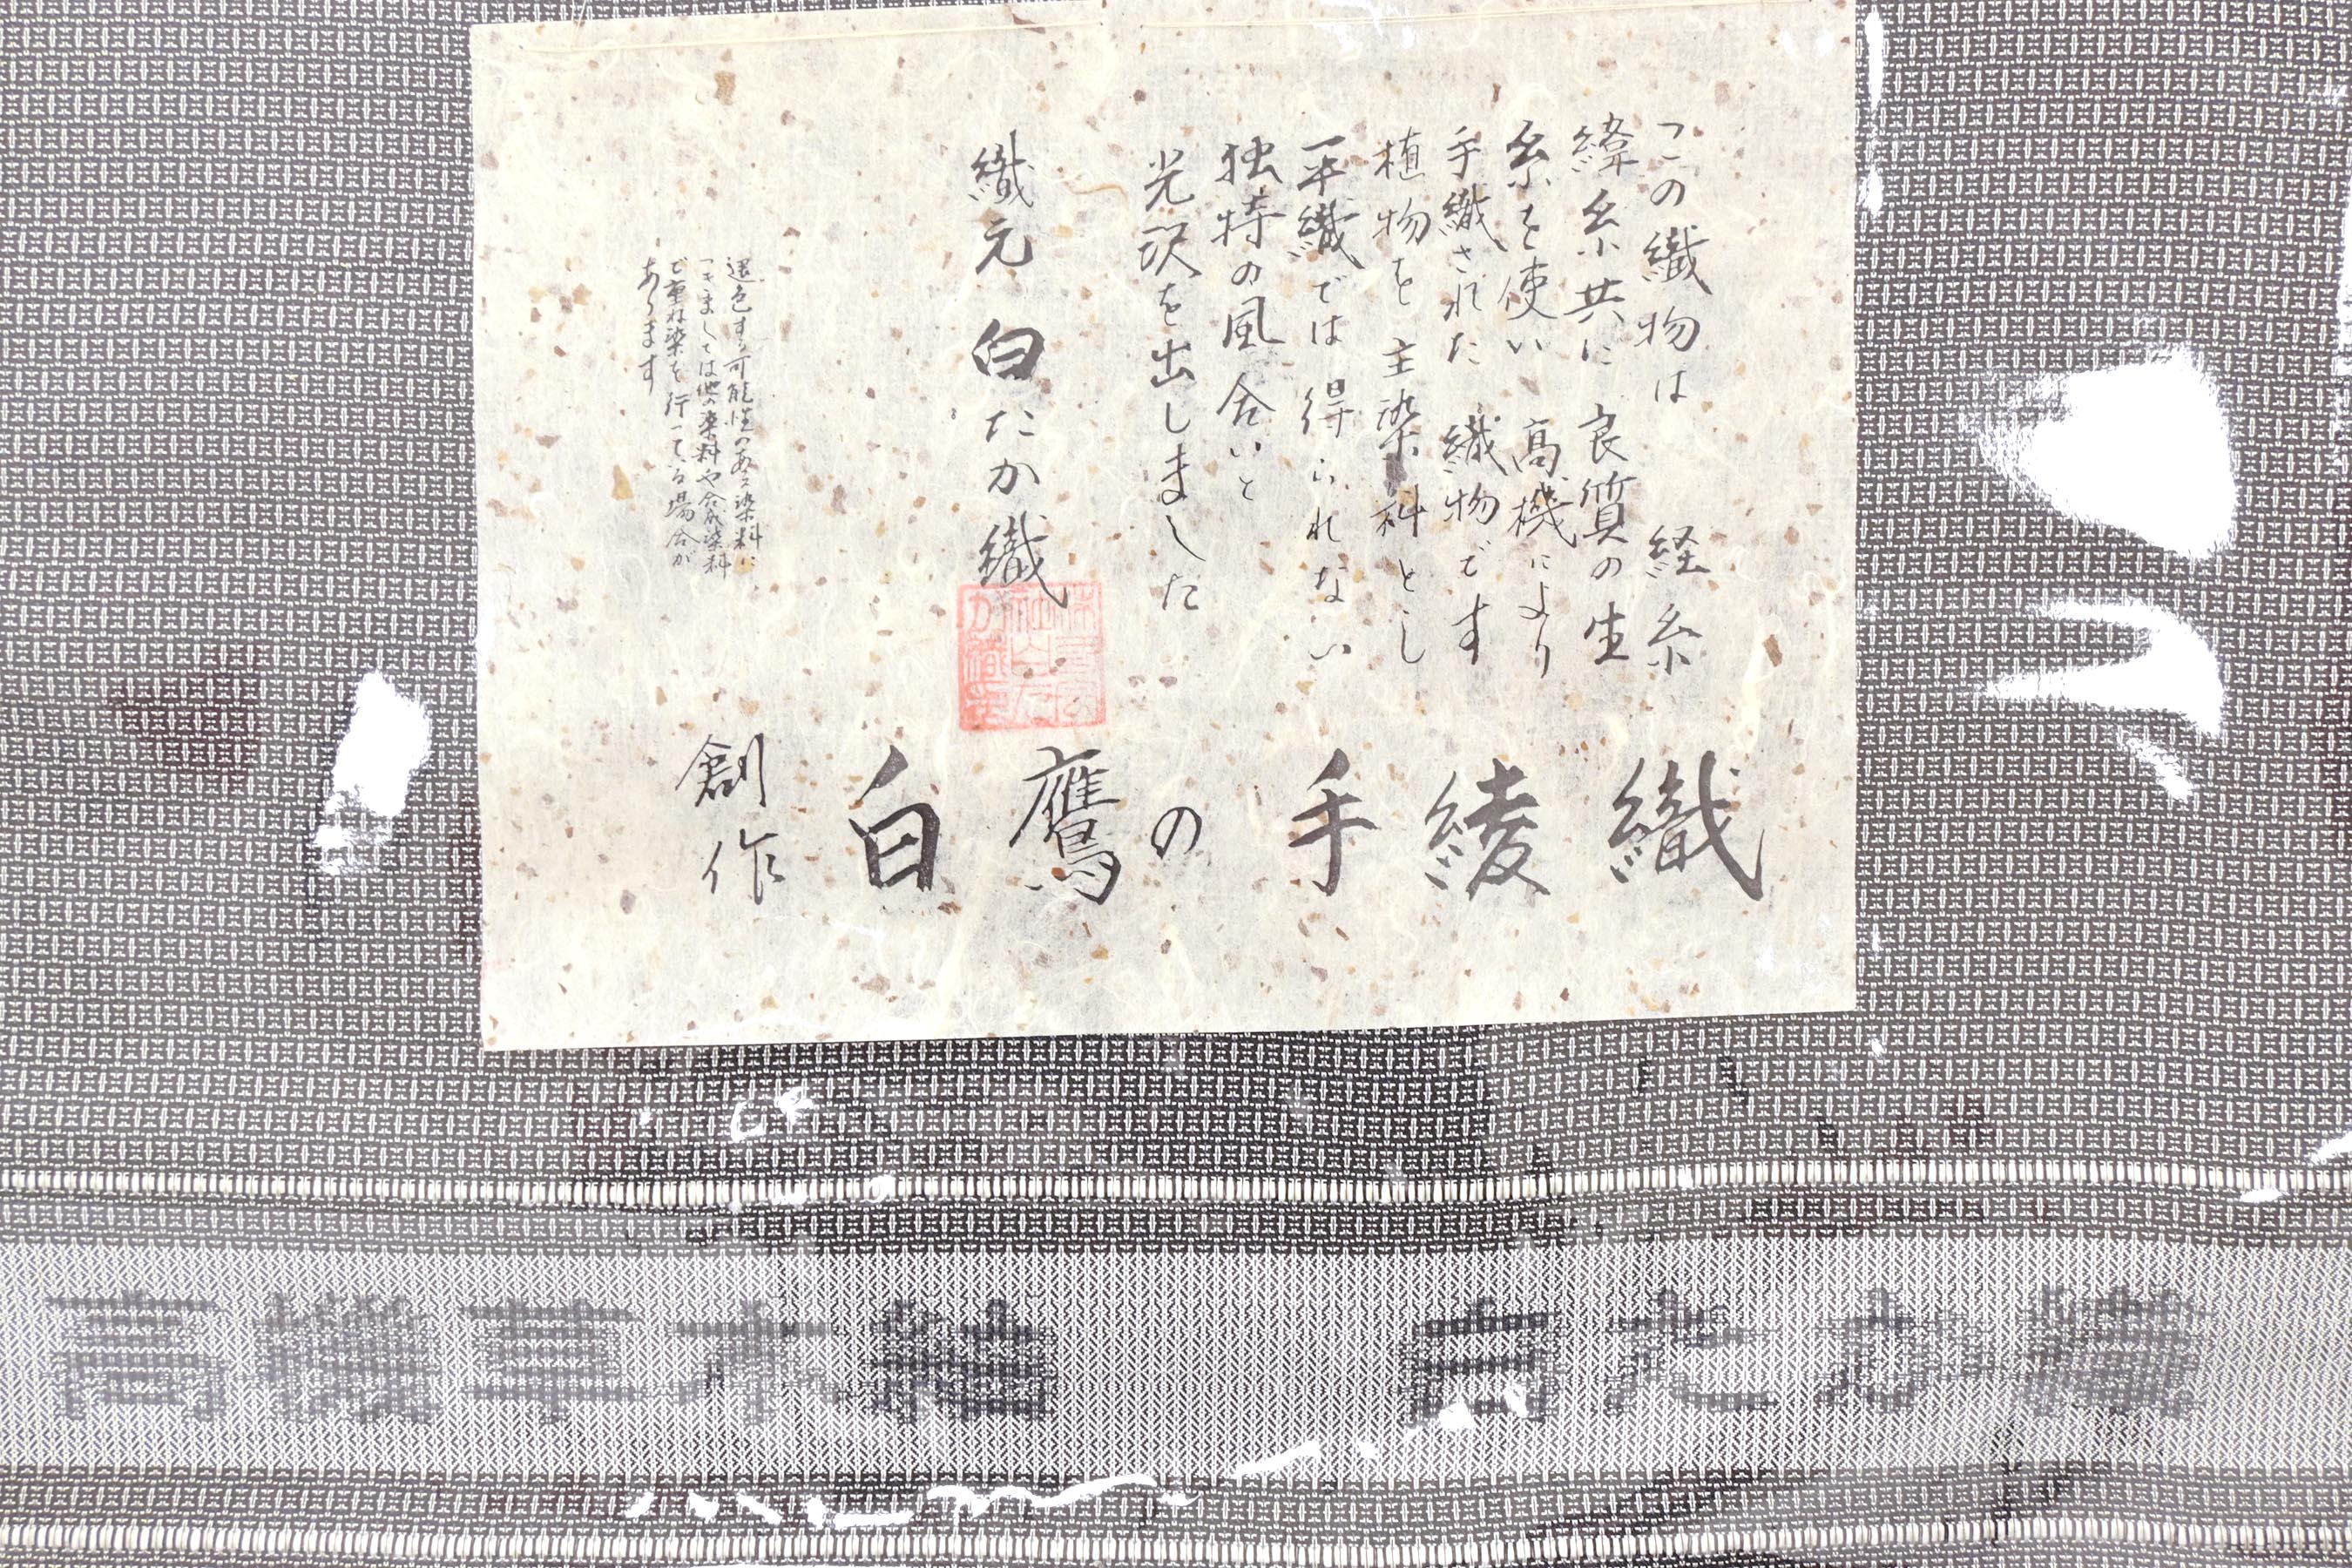 この織物は 経糸
緯糸共に 良質の生
糸を使い 高機により
手織された 織物です
植物を 主染料とし
平織では 得られない
独特の風合いと
光沢を出しました
織元 白たか織
退色する可能性のある染料に
つきましては他の染料や合成染料
で重ね染を行っている場合が
あります
創作 白鷹の 手綾織
高機草木紬 白たか織